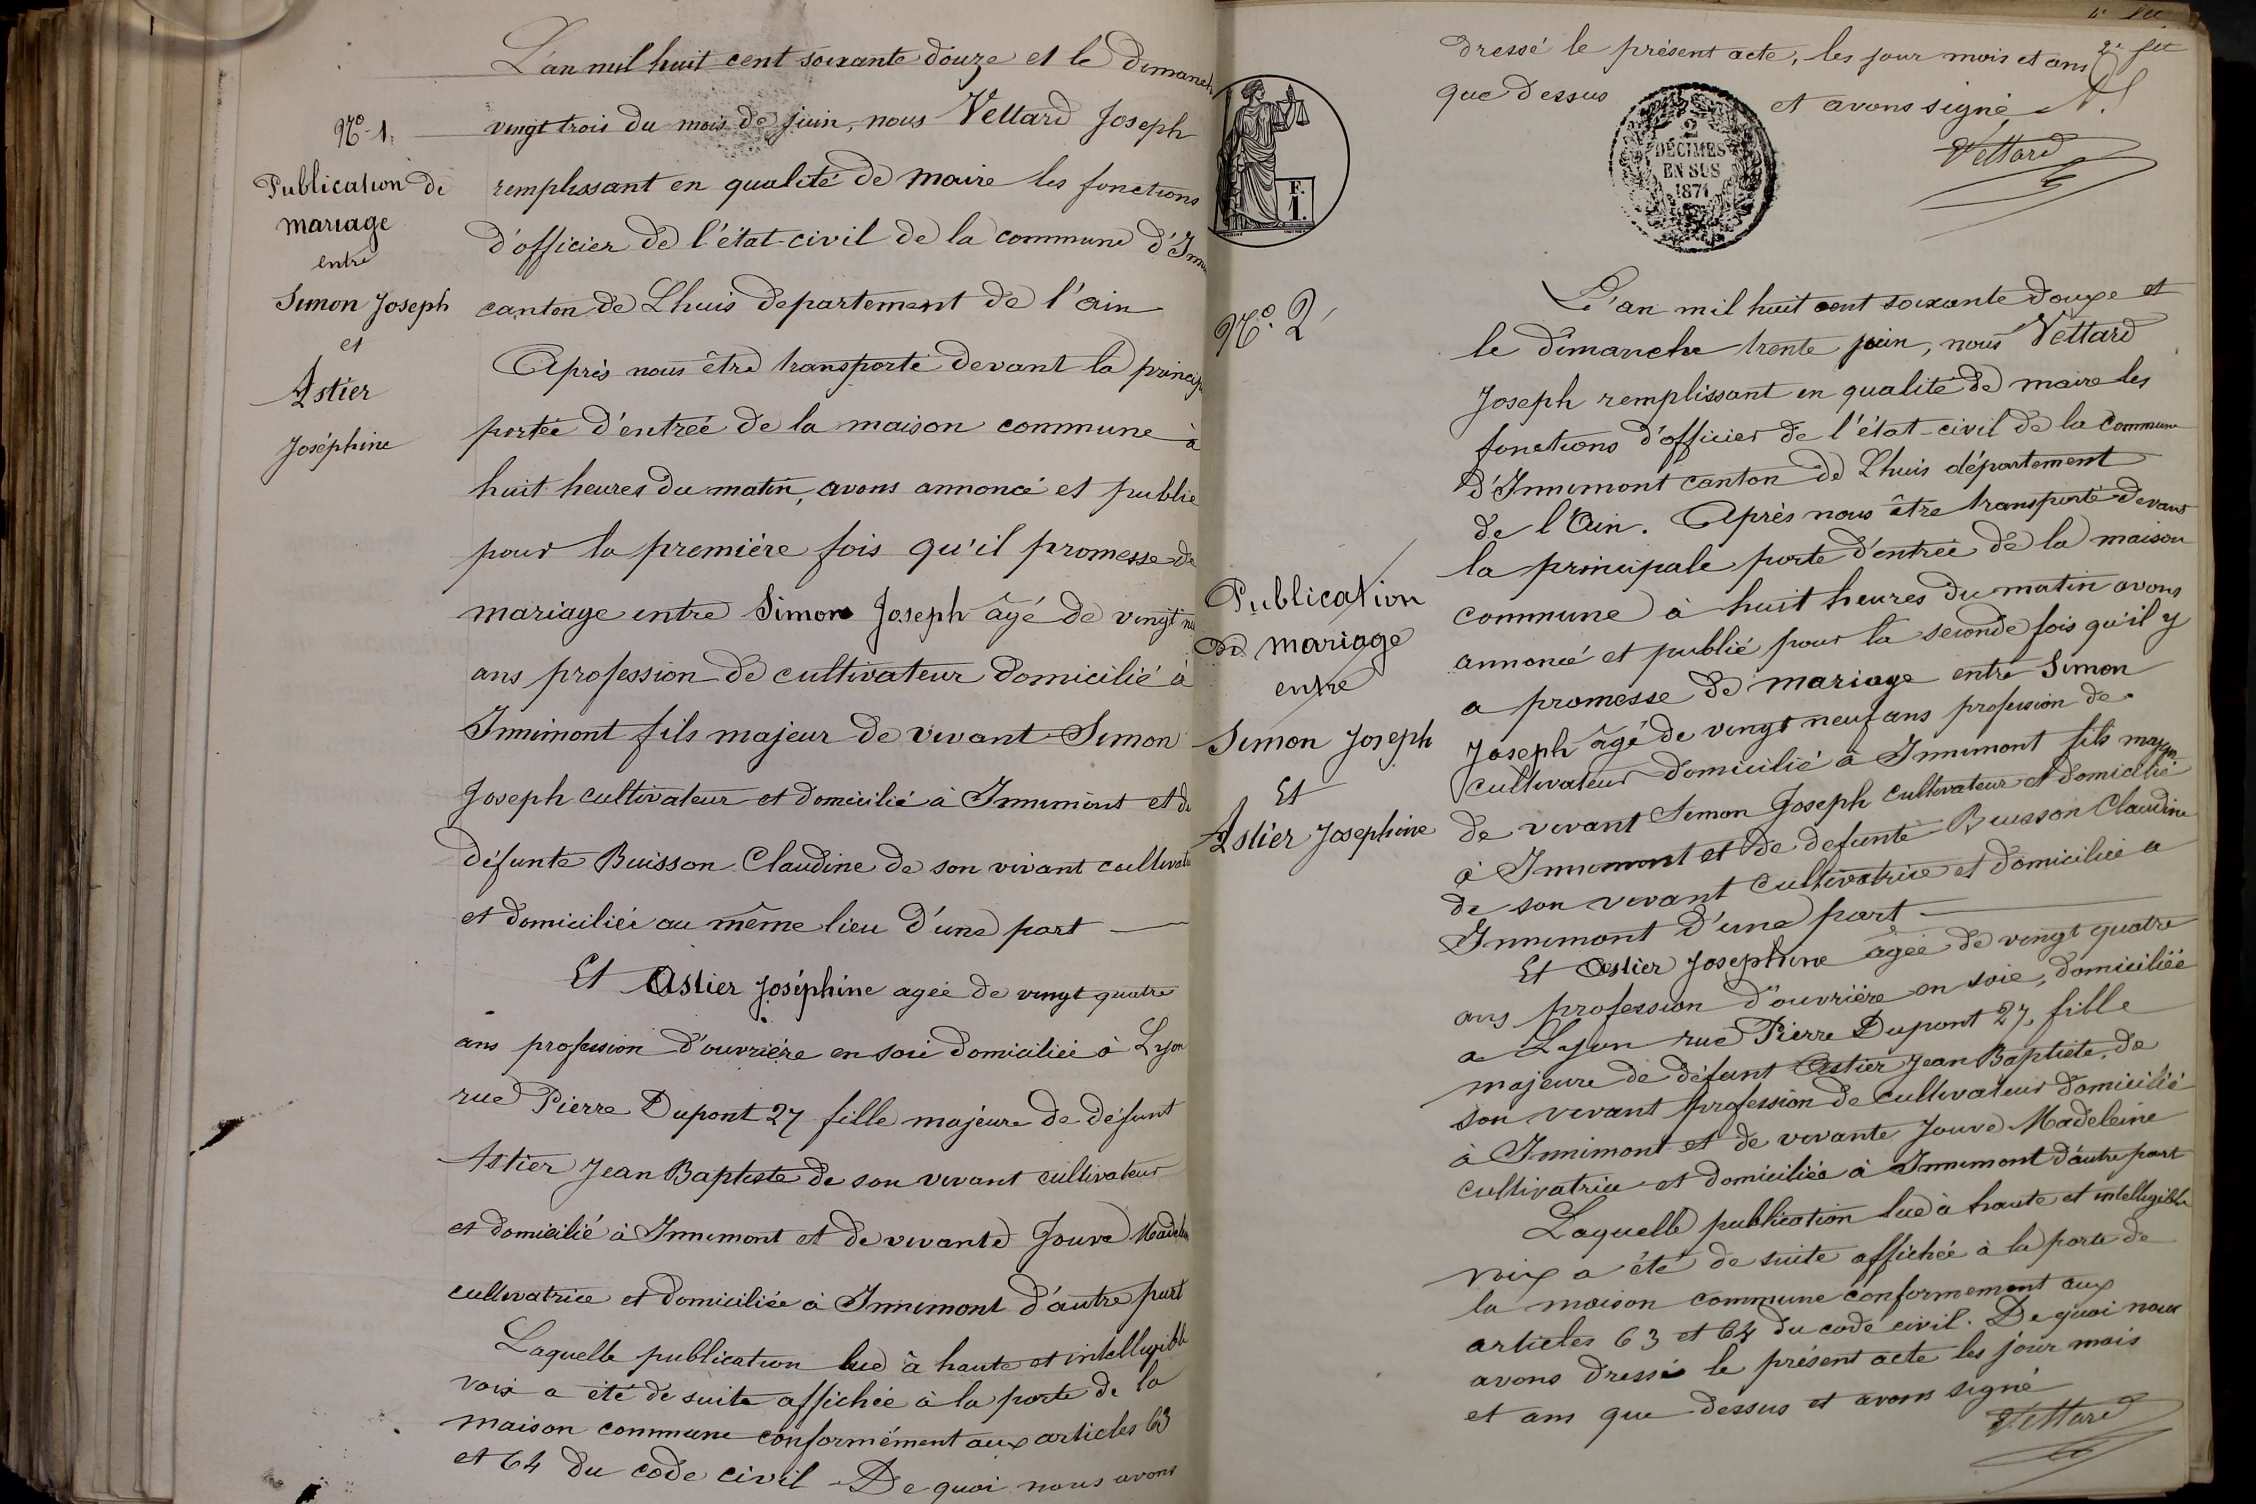 L'an mil huit cent soixante douze et le dimanch
N° 1.
vingt trois du mois de juin, nous Vettard Joseph
Publication de
mariage
entre
Simon Joseph
et
Astier
Joséphine
remplissant en qualité de maire les fonctions
d'officier de l'état-civil de la commune d'Inni
canton de Lhuis departement de l'ain
Après nous être transporté devant la princip
portée d'entreé de la maison commune à
huit heures du matin, avons annoncé et publié
pour la première fois qu'il promesse de
mariage entre Simon Joseph âgé de vingt ne
ans profession de cultivateur domicilié à
Innimont fils majeur de vivant Simon
Joseph cultivateur et domicilié à Innimont et de
défunte Buisson Claudine de son vivant cultivat
et domiciliée au même lieu d'une part
Et Astier Joséphine agée de vingt quatre
ans profession d'ouvrière en soie domiciliée à Lyon
rue Pierre Dupont 27 fille majeure de défunt
Astier Jean Baptiste de son vivant cultivateur
et domicilié à Innimont et de vivante Jouve Madelei
cultivatrice et domiciliée à Innimont d'autre part
Laquelle publication lue à haute et intelligible
voix a été de suite affichée à la porte de la
maison commune conformément aux articles 63
et 64 du code civil - De quoi nous avons
dressé le présent acte, les jour mois et ans
que dessus et avons signé
Vettard
F.
1.
2
DÉCIMES
EN SUS
1871
N° 2
Publication
de mariage
entre
Simon Joseph
Et
Astier Josephine
L'an mil huit cent soixante douze et
le dimanche trente juin, nous Vettard
Joseph remplissant en qualité de maire les
fonctions d'officier de l'état-civil de la commune
d'Innimont canton de Lhuis département
de l'Ain. Après nous être transporté devant
la principale porte d'entrée de la maison
commune à huit heures du matin avons
annoncé et publié pour la seconde fois qu'il y
a promesse de mariage entre Simon
Joseph âgé de vingt neuf ans profession de
cultivateur domicilié à Innimont fils majeur
de vivant Simon Joseph cultivateur et domicilié
à Innimont et de defunte Buisson Claudine
de son vivant cultivatrice et domiciliée a
Innimont d'une part
Et Astier Josephine âgée de vingt quatre
ans profession d'ouvrière en soie, domiciliée
a Lyon rue Pierre Dupont 27, fille
majeure de défunt Astier Jean Baptiste, de
son vivant profession de cultivateur domicilié
à Innimont et de vivante Jouve Madeleine
cultivatrice et domiciliée à Innimont d'autre part
Laquelle publication lue à haute et intelligible
voix a été de suite affichée à la porte de
la maison commune conformement aux
articles 63 et 64 du code civil. De quoi nous
avons dressé le présent acte les jour mois
et ans que dessus et avons signé
Vettard